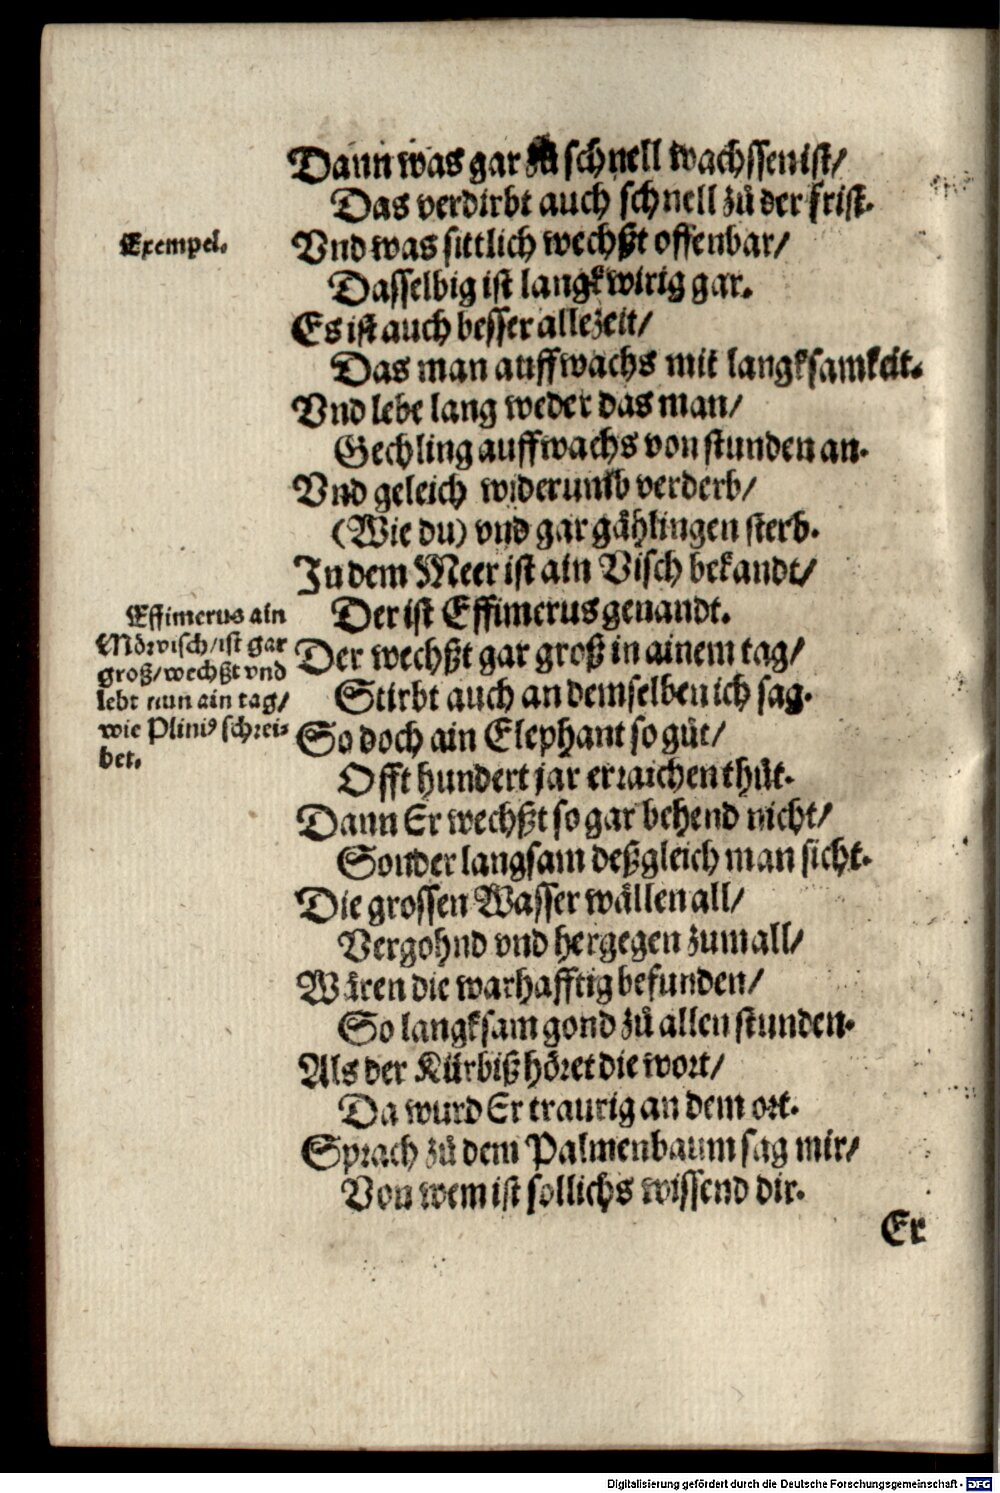 Dann was gar zů schnell wachssen ist/
Das verdirbt auch schnell zů der frist.
Exempel.
Vnd was sittlich wechßt offenbar/
Dasselbig ist langkwirig gar.
Es ist auch besser allezeit/
Das man auffwachs mit langksamkeit.
Vnd lebe lang weder das man/
Gechling auffwachs von stunden an.
Vnd geleich widerumb verderb/
(Wie du) vnd gar gählingen sterb.
In dem Meer ist ain Visch bekandt/
Der ist Effimerus genandt.
Effimerus ain
Mörvisch/ist gar
groß/wechßt vnd
lebt nun ain tag/
wie Pliniꝰ schrei-
bet.
Der wechßt gar groß in ainem tag/
Stirbt auch an demselben ich sag.
So doch ain Elephant so gůt/
Offt hundert jar erraichen thůt.
Dann Er wechßt so gar behend nicht/
Sonder langsam deßgleich man sicht.
Die grossen Wasser wällen all/
Vergohnd vnd hergegen zumall/
Wären die warhafftig befunden/
So langksam gond zů allen stunden.
Als der Kürbiß höret die wort/
Da wurd Er traurig an dem ort.
Sprach zů dem Palmenbaum sag mir/
Von wem ist sollichs wissend dir.
Er
Digitalisierung gefördert durch die Deutsche Forschungsgemeinschaft - DFG